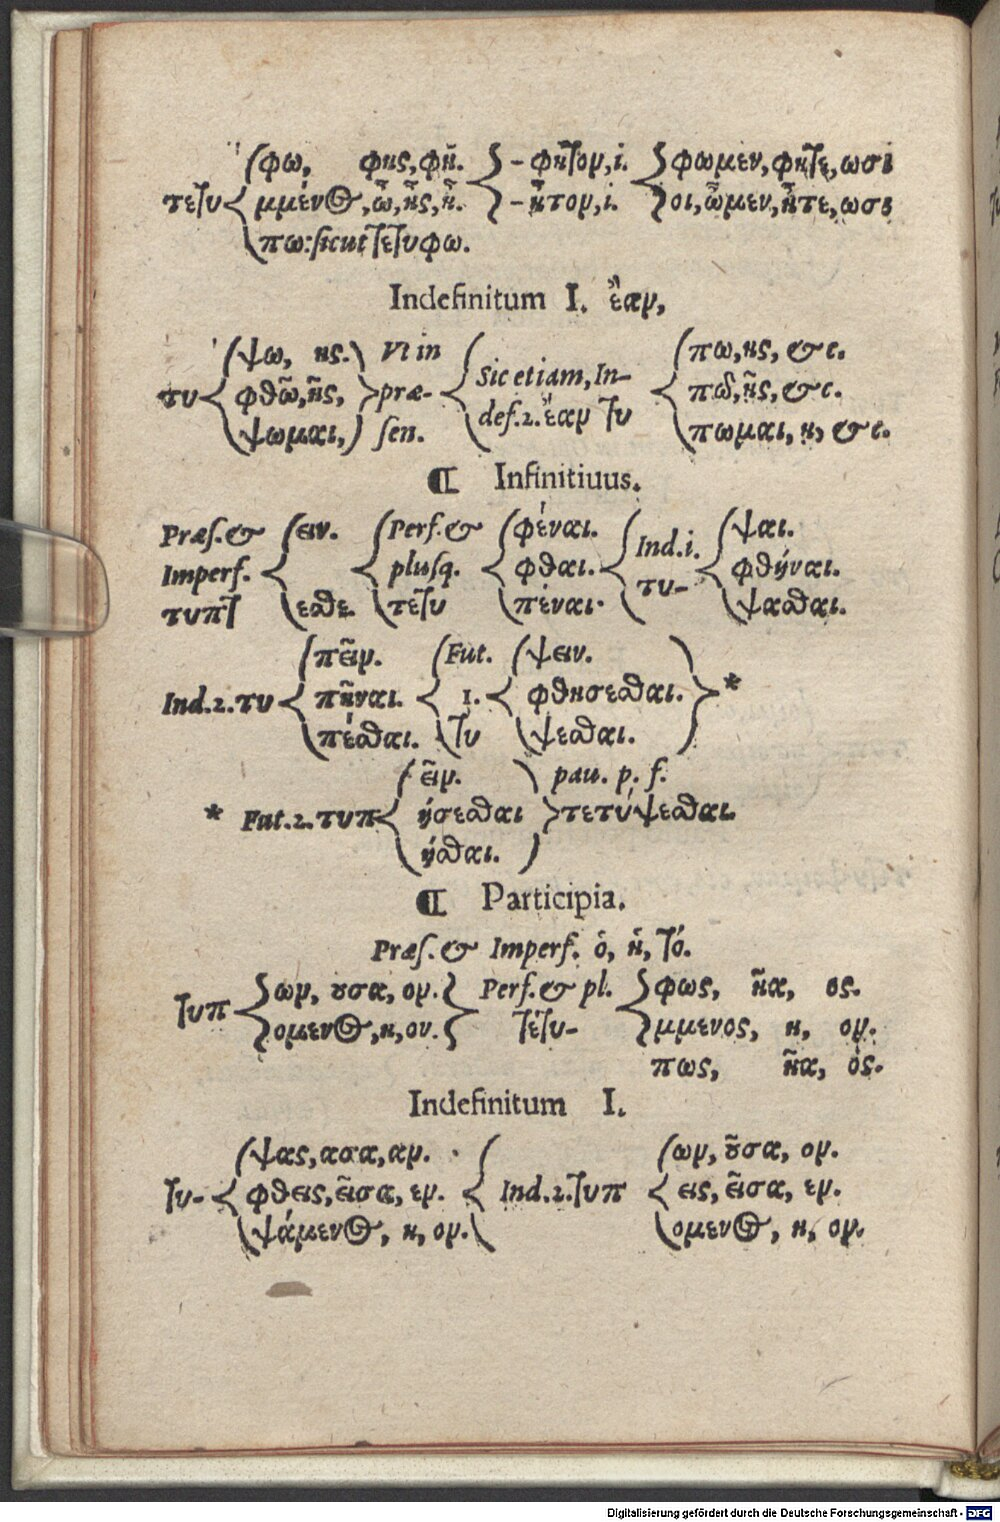 φω, φης, φῇ. - φητον, ί. φωμεν, φητε, ωσι
τετυ μμένος, ὦ, ᾖς, ᾖ. - ῆτον, ί. οι, ὦμεν, ἦτε, ωσι
πω: sicut τετυφω.
Indefinitum I. ἐὰν,
ψω, ης. Vt in πω, ης, &c.
τυ φθῶ, ῆς, præ- Sic etiam, Indef. 2. ἐὰν τυ πῶ, ῆς, &c.
ψωμαι, sen. πωμαι, η, &c.
Infinitiuus.
Præs. & ειν. Perf. & φέναι. Ind. i. ψαι.
Imperf. plusq. φθαι. τυ- φθήναι.
τυπτ εσθε. τετυ πέναι. ψασθαι.
πεῖν. Fut. ψειν.
Ind. 2. τυ πῆναι. 1. φθησεσθαι. *
πέσθαι. τυ ψεσθαι.
εῖν. pau. p. f.
* Fut. 2. τυπ ήσεσθαι τετύψεσθαι.
ήσθαι.
Participia.
Præs. & Imperf. ὁ, ἡ, τό.
τυπ ων, ουσα, ον. Perf. & pl. φως, ῆα, ος.
ομενος, η, ον. τέτυ- μμενος, η, ον.
πως, ῆα, ός.
Indefinitum I.
ψας, ασα, αν. ων, οῦσα, ον.
τυ- φθεις, εῖσα, εν. Ind. 2. τυπ εις, εῖσα, εν.
ψάμενος, η, ον. ομενος, η, ον.
Digitalisierung gefördert durch die Deutsche Forschungsgemeinschaft - DFG